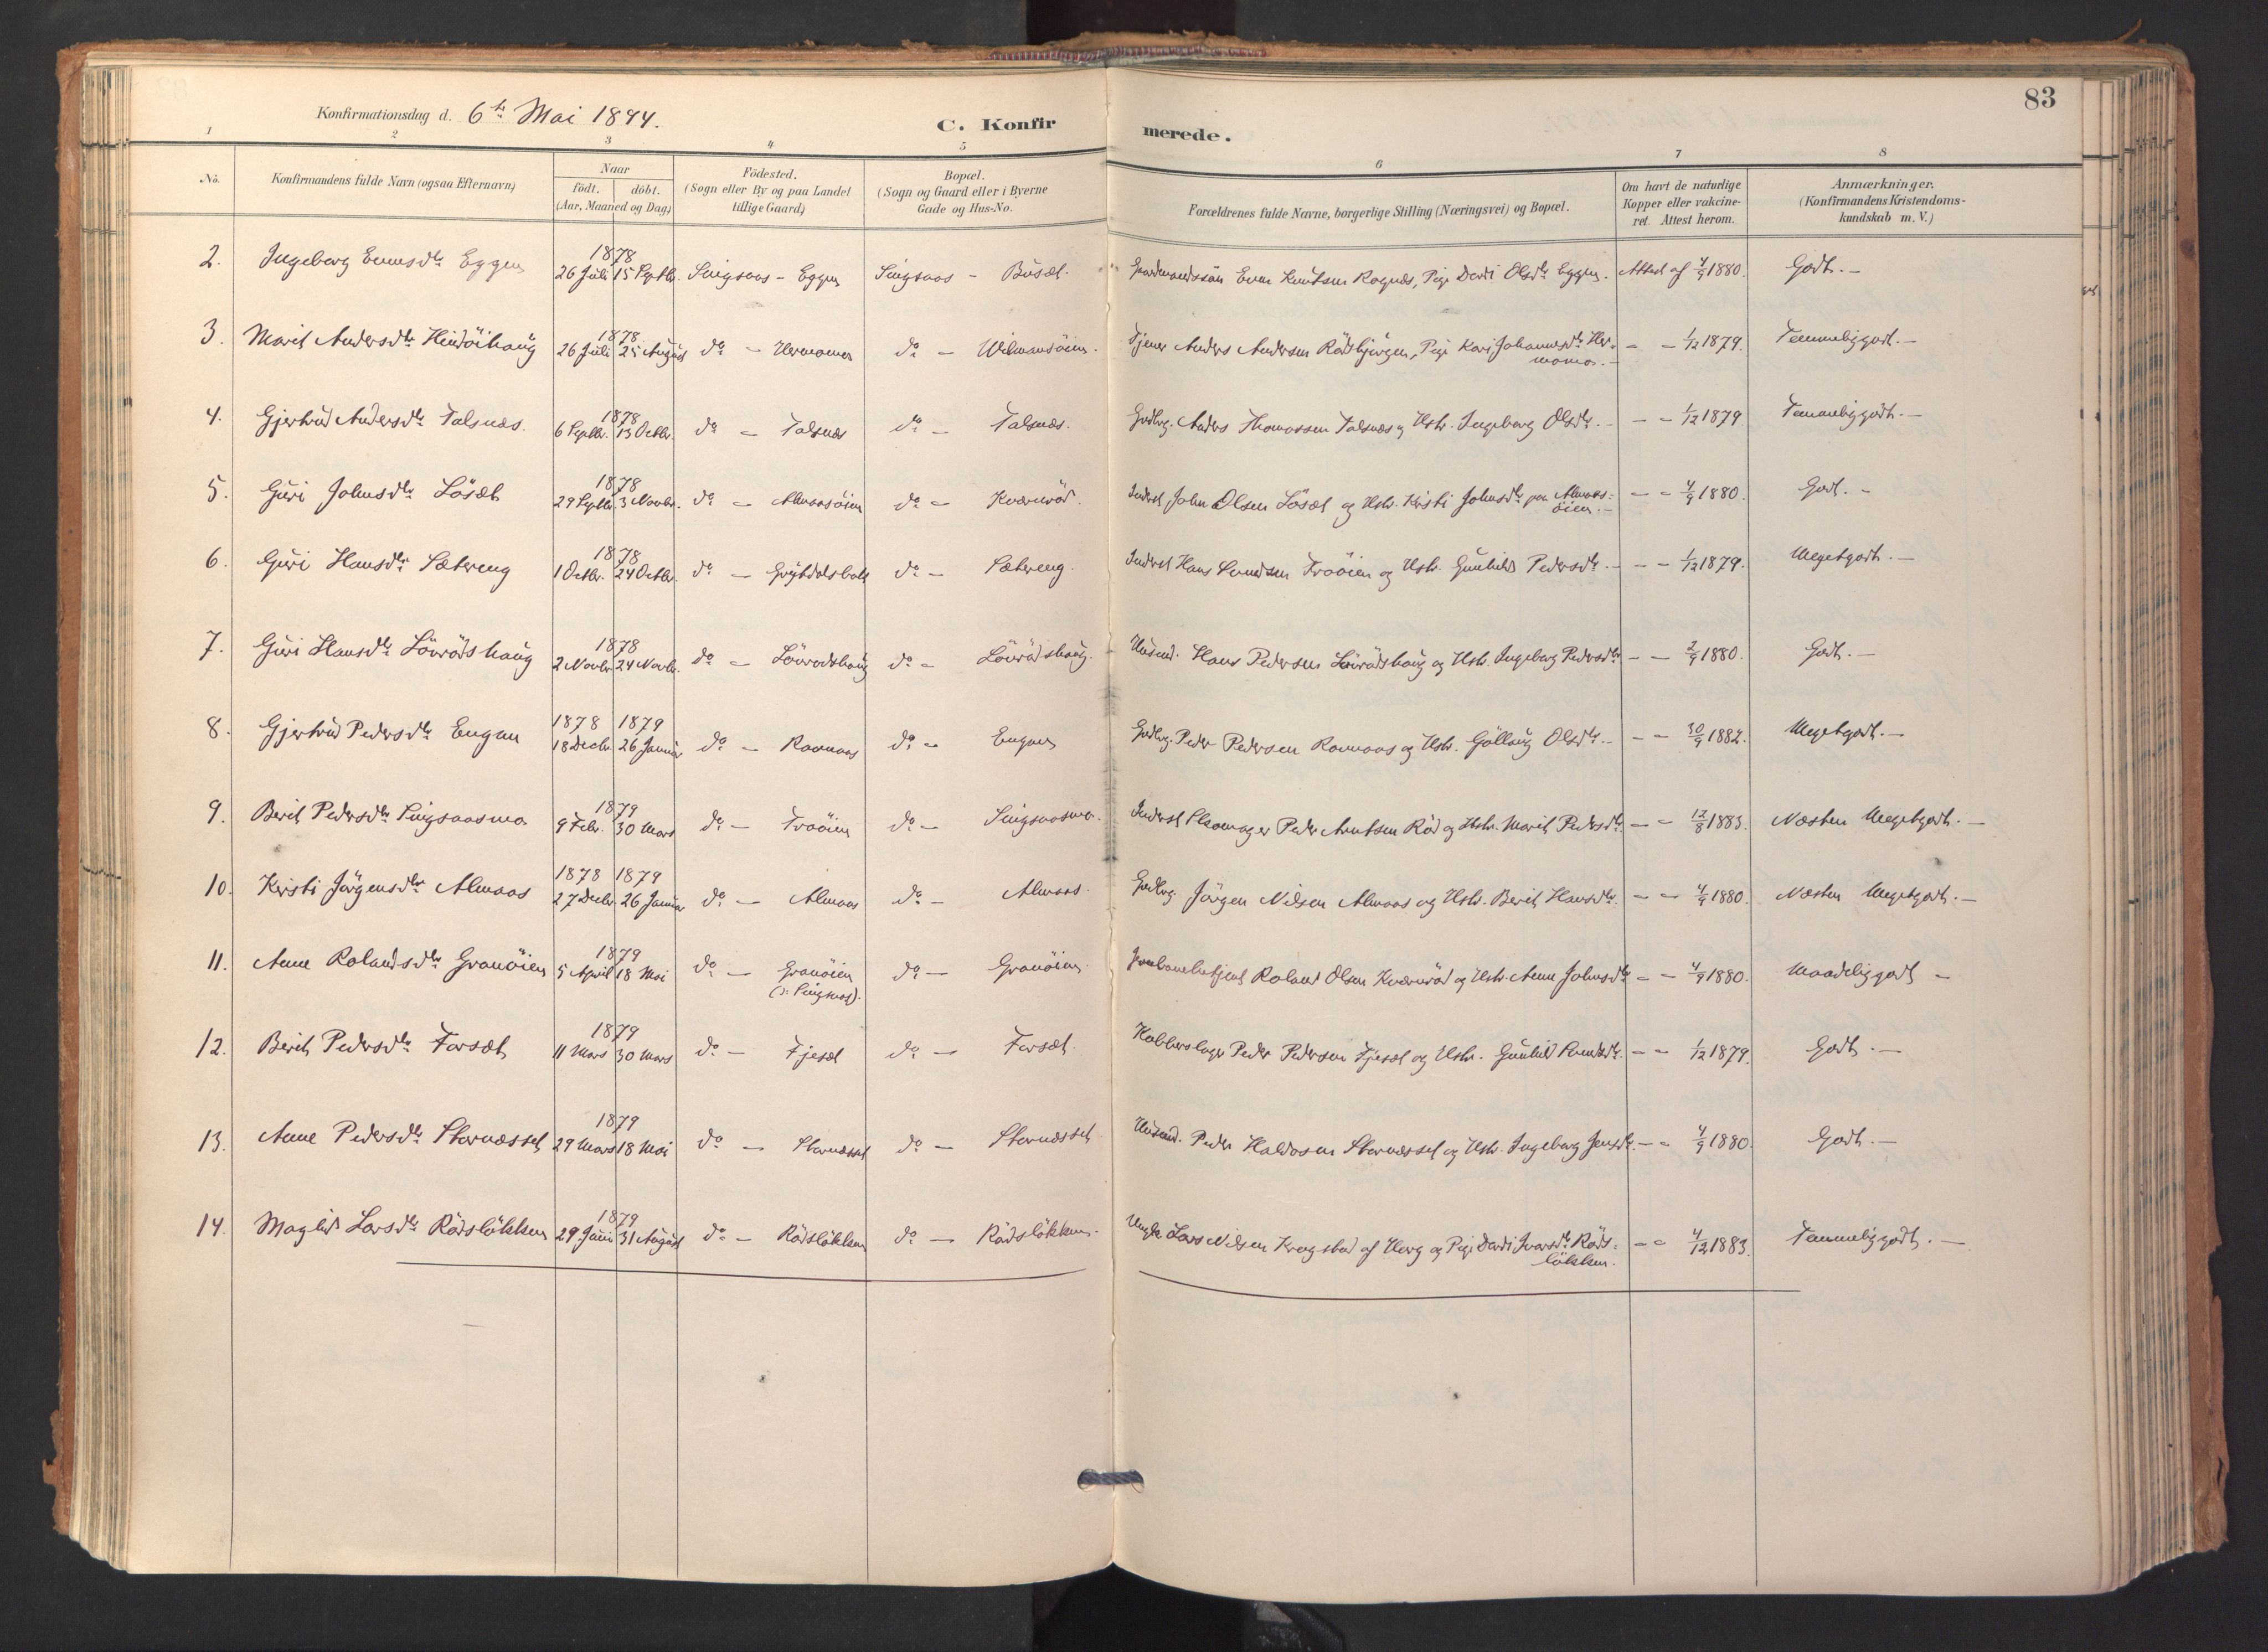 83
Konfirmationsdag d. 6te Mai 1894.
C. Konfirmerede.
1 2 3 4 5 6 7 8
No. Konfirmandens fulde Navn (ogsaa Efternavn) Naar födt. döbt. (Aar, Maaned og Dag) Födested. (Sogn eller By og paa Landet tillige Gaard) Bopæl. (Sogn og Gaard eller i Byerne Gade og Hus-No. Forældrenes fulde Navne, borgerlige Stilling (Næringsvei) og Bopæl. Om havt de naturlige Kopper eller vakcineret. Attest herom. Anmærkninger. (Konfirmandens Kristendomskundskab m. V.)
2. Ingeborg Evensdtr Eggen 1878 26 Juli 15 Septbr. Singsaas - Eggen Singsaas - Busæt. Gaardmandssön Even Knutsen Rognes, Pige Dordi Olsdtr Eggen. Attest af 4/9 1880. Godt. -
3. Marit Andersdtr Heidöihaug 1878 26 Juli 25 August do - Hermomo do - Wilmansöien. Tjener Anders Andersen Rödsbjörgen, Pige Kari Johannesdtr Her=
momo. - - - 1/12 1879. Temmeliggodt. -
4. Gjertrud Andersdtr Talsnes. 1878 6 Septbr. 13 Octbr. do - Talsnes do - Talsnes. Gbrg. Anders Thomassen Talsnes og Hstr. Ingeborg Olsdtr. - - - 1/12 1879 Temmeliggodt. -
5. Guri Johnsdtr Lösæt 1878 29 Septbr. 3 Novbr. do - Almaasöien do - Kværnröd. Inderst John Olsen Lösæt og Hstr. Kirsti Johnsdtr paa Almaas=
öien. - - - 4/9 1880. Godt. -
6. Guri Hansdtr Sætereng 1878 1 Octbr. 24 Octbr. do - Grytdalsbak do - Sætereng. Inderst Hans Svendsen Troöien og Hstr. Gunhild Pedersdtr. - - - 1/12 1879. Megetgodt. -
7. Guri Hansdtr Lövrödshaug 1878 2 Novbr. 24 Novbr. do - Lövrödshaug do - Lövrödshaug. Husmd. Hans Pedersen Lövrödshaug og Hstr. Ingeborg Pedersdtr - - 2/9 1880. Godt. -
8. Gjertrud Pedersdtr Engan 1878 1879 18 Decbr. 26 Januar do - Ramaas do - Engan Gbrg. Peder Pedersen Ramaas og Hstr. Göllaug Olsdtr. - - - 30/9 1882. Megetgodt. -
9. Berit Pedersdtr Singsaasmo 1879 9 Febr. 30 Mars do - Troöien do - Singsaasmo. Inderst Skomager Peder Arntsen Röd og Hstr. Marit Pedersdtr. - - 12/8 1883. Næsten Megetgodt. -
10. Kirsti Jörgensdtr Almaas 1878 1879 27 Decbr. 26 Januar do - Almaas do - Almaas. Gbrg. Jörgen Nilsen Almaas og Hstr. Berit Hansdtr. - - 4/9 1880. Næsten Megetgodt. -
11. Anne Rolandsdtr Granöien 1879 5 April 18 Mai do - Granöien
(ɔ: Singsaas). do - Granöien. Jernbanebetjent Roland Olsen Kværnröd og Hstr. Anne Johnsdtr - - 4/9 1880. Maadeliggodt -
12. Berit Pedersdtr Forsæt 1879 11 Mars 30 Mars do - Fjesæt do - Forsæt. Kobberslager Peder Pedersen Fjesæt og Hstr. Gunhild Svendsdtr. - - 1/12 1879. Godt. -
13. Anne Pedersdtr Stornæsset 1879 29 Mars 18 Mai do - Stornæsset do - Stornæsset. Husmd. Peder Haldosen Stornæsset og Hstr. Ingeborg Jensdtr. - - 4/9 1880. Godt. -
14. Maglid Larsdtr Rödslökken 1879 29 Juni 31 August do - Rödslökken do - Rödslökken. Ungk. Lars Nilsen Krogstad af Horg og Pige Dordi Ivarsdtr Röds=
lökken. - - 4/12 1883. Temmeliggodt. -